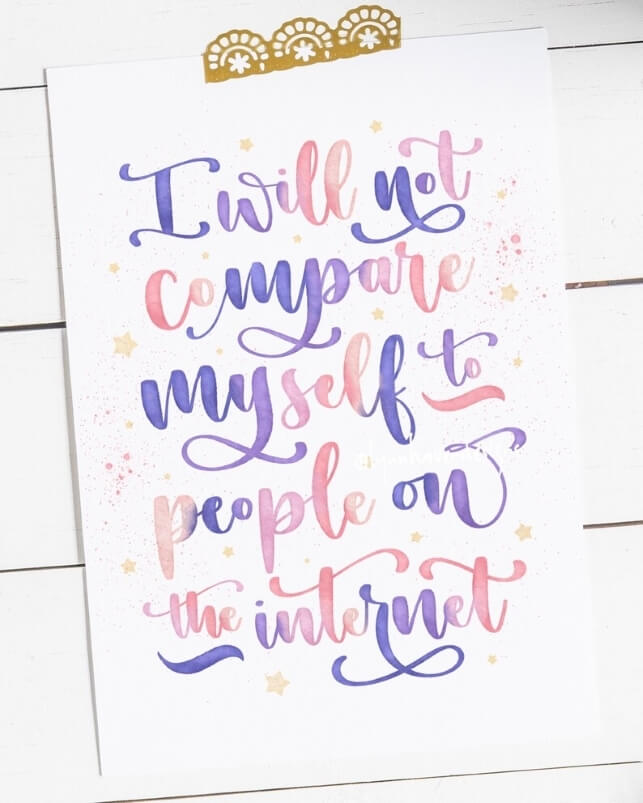 I will not
compare
myself to
people on
the internet